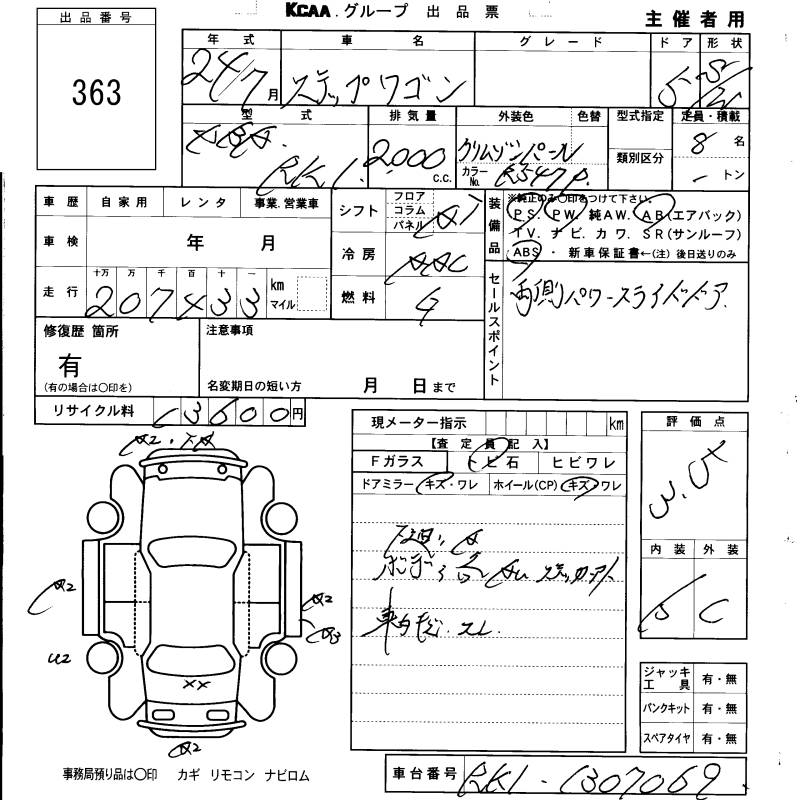 KCAA グループ 出品票
主催者用
出品番号
363
年式 車名 グレード ドア 形状
24/7月 ステップワゴン 5 S/W
型式 排気量 外装色 色替 型式指定 定員・積載
DBA. RK1 2,000 c.c. クリムゾンパール 8名
カラーNo. R547P 類別区分 - トン
車歴 自家用 レンタ 事業.営業車
車検 年 月
走行 十万 万 千 百 十 一
207433 km マイル
シフト フロア コラム パネル AT
冷房 AAC
燃料 G
装備品 ※純正のみ〇印をつけて下さい。
PS. PW. 純AW. AB(エアバック)
TV. ナビ. カワ. SR(サンルーフ)
ABS ・ 新車保証書←(注) 後日送りのみ
セールスポイント 両側パワースライドドア.
修復歴 箇所
有
(有の場合は〇印を)
注意事項
名変期日の短い方 月 日まで
リサイクル料 13600円
現メーター指示 km
【査定員記入】
Fガラス トビ石 ヒビワレ
ドアミラー キズ・ワレ ホイール(CP) キズ・ワレ
ボデー
車内
評価点
内装 外装
C
A2
A2
A2
A3
U2
XX
A2
ジャッキ工具 有・無
パンクキット 有・無
スペアタイヤ 有・無
事務局預り品は〇印 カギ リモコン ナビロム
車台番号 RK1-1307069